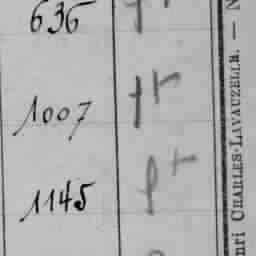 636
1007
1145
nri CHARLES-LAVAUZELLE. — N